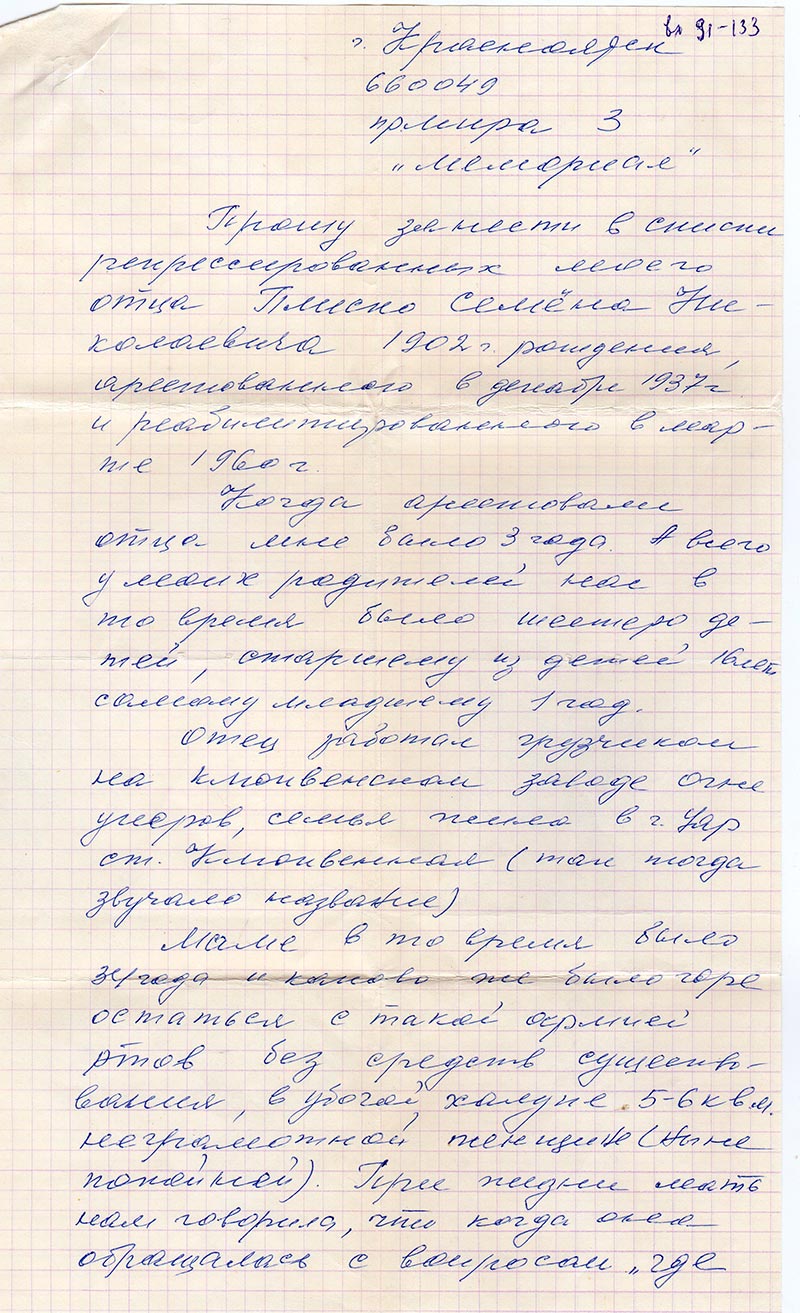 вл 91-133
г. Красноярск
660049
пр мира 3
„Мемориал"
Прошу занести в списки
репрессированных моего
отца Плиско Семёна Ни-
колаевича 1902 г. рождения,
арестованного в декабре 1937 г
и реабилитированного в мар-
те 1960 г.
Когда арестовали
отца мне было 3 года. А всего
у моих родителей нас в
то время было шестеро де-
тей, старшему из детей 16 лет
самому младшему 1 год.
Отец работал грузчиком
на клюквенском заводе огне
упоров, семья жила в г. Уяр
ст. Клюквенная (так тогда
звучало название)
Маме в то время было
34 года и каково же было горе
остаться с такой армией
ртов без средств существо-
вания, в убогой халупе 5-6 кв м.
неграмотной женщине (ныне
покойной). При жизни мать
нам говорила, что когда она
обращалась с вопросом „где